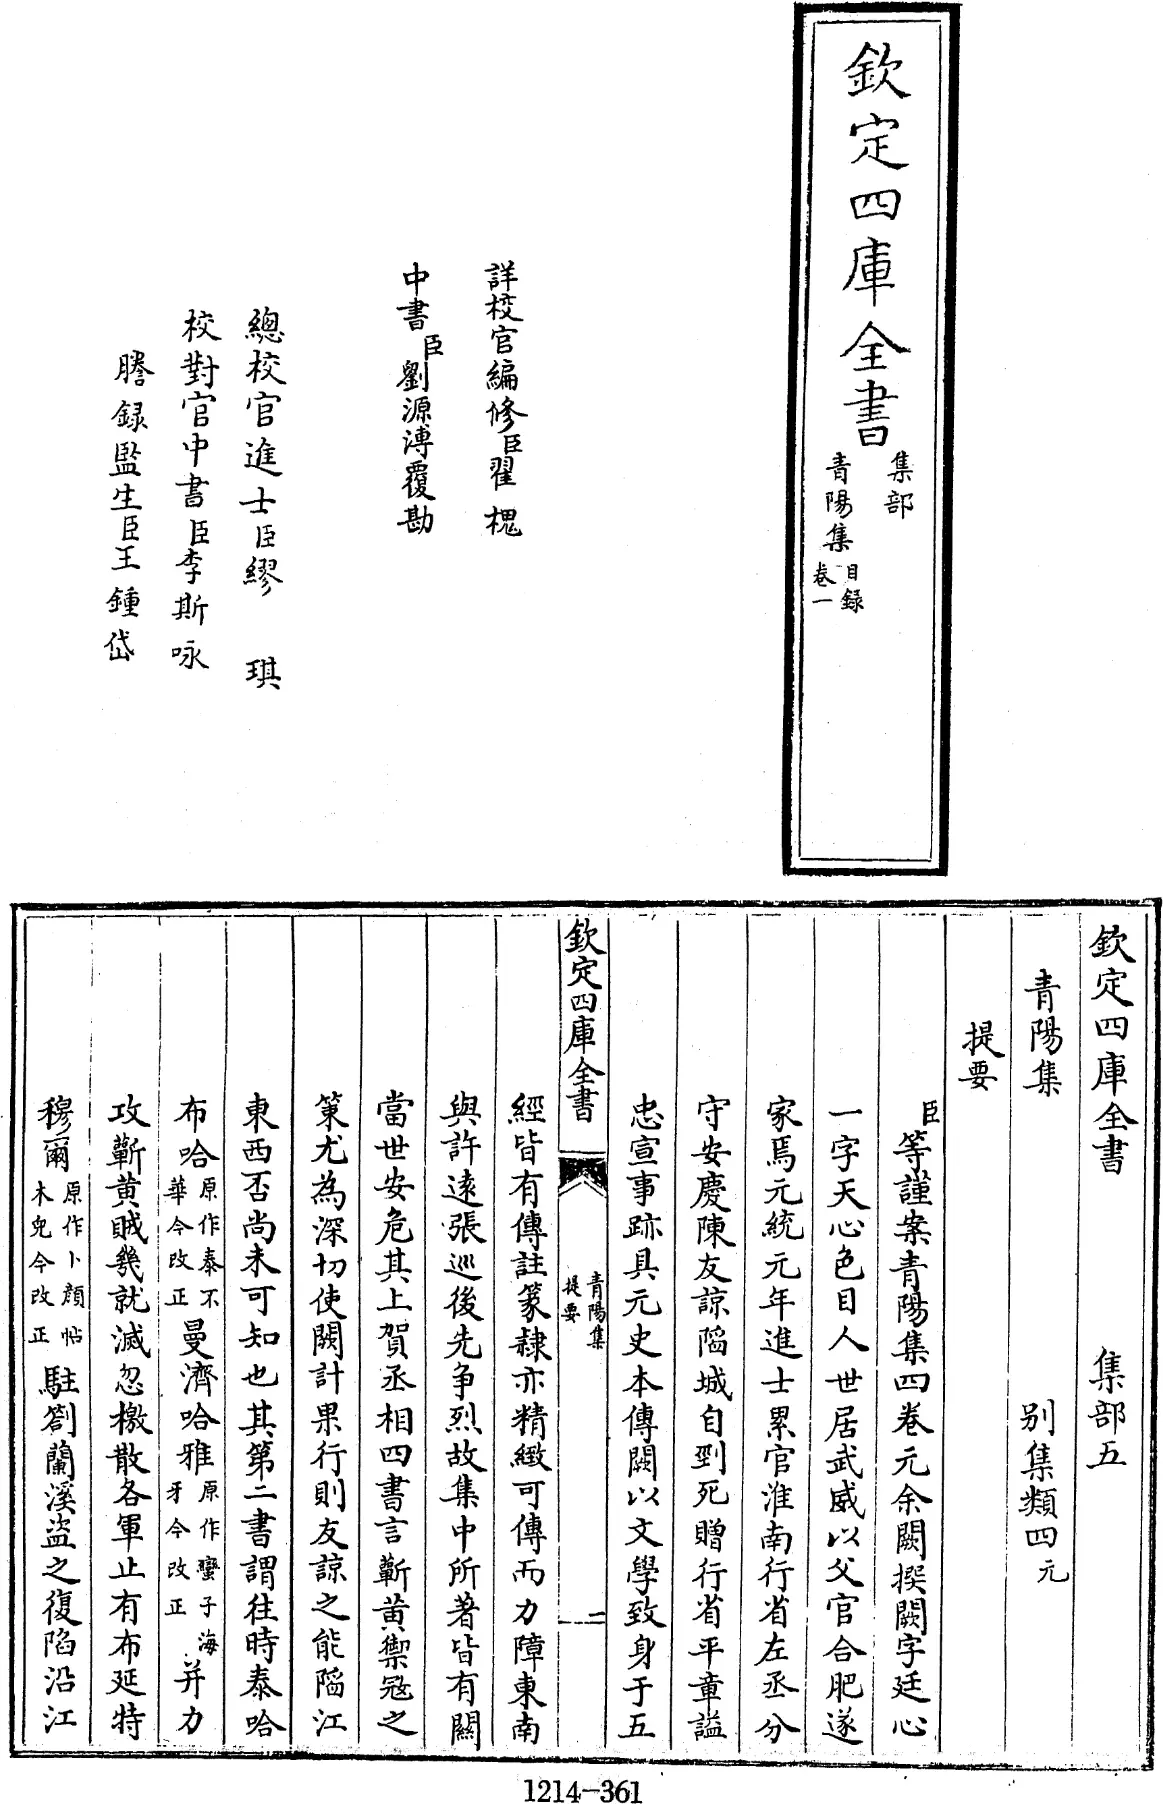 欽定四庫全書
集部
青陽集
目録
卷一
詳校官編修臣翟槐
中書臣劉源溥覆勘
總校官進士臣繆琪
校對官中書臣李斯咏
謄録監生臣王鍾岱
欽定四庫全書 集部五
青陽集 别集類四元
提要
臣等謹案青陽集四卷元余闕撰闕字廷心
一字天心色目人世居武威以父官合肥遂
家焉元統元年進士累官淮南行省左丞分
守安慶陳友諒陷城自剄死贈行省平章諡
忠宣事跡具元史本傳闕以文學致身于五
欽定四庫全書
青陽集
提要
二
經皆有傳註篆隸亦精緻可傳而力障東南
與許逺張巡後先争烈故集中所著皆有關
當世安危其上賀丞相四書言蘄黄禦冦之
策尤為深切使闕計果行則友諒之能陷江
東西否尚未可知也其第二書謂往時泰哈
布哈原作泰不華今改正曼濟哈雅原作蠻子海牙今改正并力
攻蘄黄賊幾就滅忽檄散各軍止有布延特
穆爾原作卜顔帖木兒今改正駐劄蘭溪盗之復陷沿江
1214-361